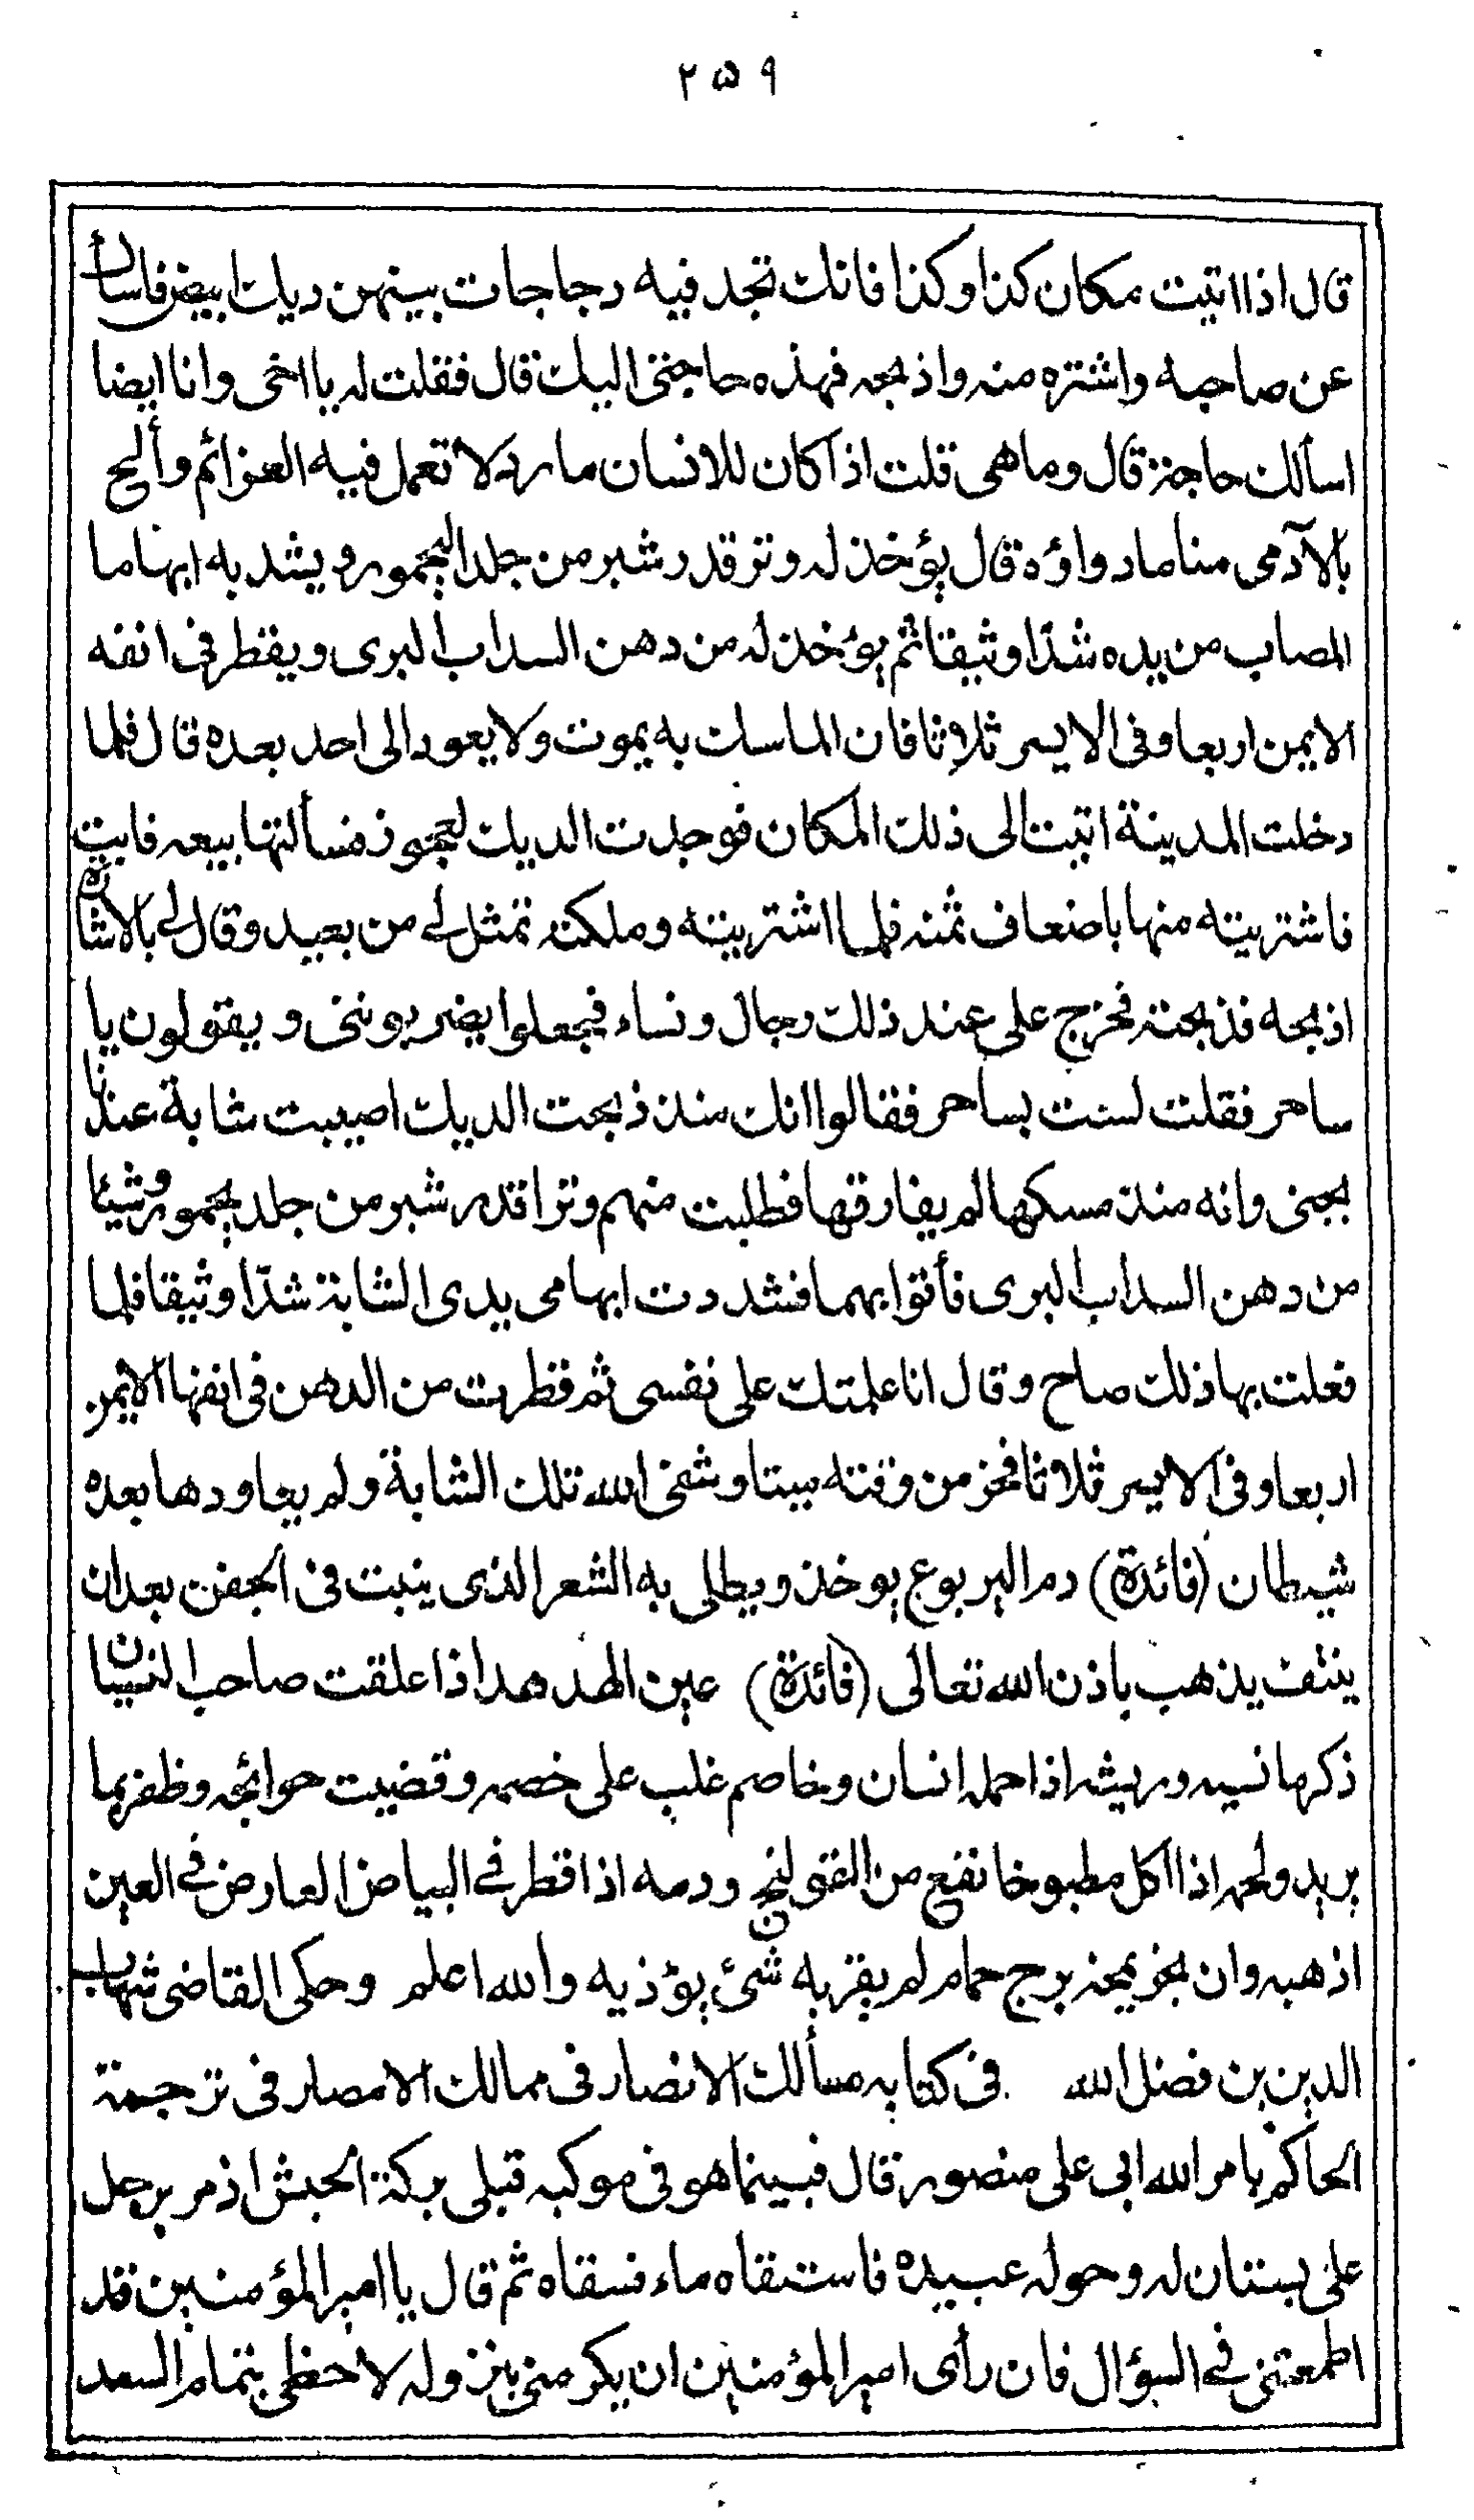 ٢٥٩
قال اذا اتيت مكان كذا وكذا فانك تجد فيه دجاجات بينهن ديك ابيض فاسأل
عن صاحبه واشتره منه واذبحه فهذه حاجتى اليك قال فقلت له يا اخى وانا ايضا
اسألك حاجة قال وما هى قلت اذا كان للانسان مارد لا تعمل فيه العزائم وألح
بالآدمى منا ما دواؤه قال يؤخذ له وتر قدر شبر من جلد اليحمور ويشد به ابهاما
المصاب من يده شدّا وثيقا ثم يؤخذ له من دهن السداب البرى ويقطر فى انفه
الايمن اربعا وفى الايسر ثلاثا فان الماسك به يموت ولا يعود الى احد بعده قال فلما
دخلت المدينة اتيت الى ذلك المكان فوجدت الديك لعجوز فسألتها بيعه فابت
فاشتريته منها باضعاف ثمنه فلما اشتريته وملكته تمثل لى من بعيد وقال لى بالاشارة
اذبحه فذبحته فخرج على عند ذلك رجال ونساء فجعلوا يضربوننى ويقولون يا
ساحر فقلت لست بساحر فقالوا انك منذ ذبحت الديك اصيبت شابة عندنا
بجنى وانه منذ مسكها لم يفارقها فطلبت منهم وترا قدر شبر من جلد يحمور وشيئا
من دهن السداب البرى فأتوا بهما فشددت ابهامى يدى الشابة شدّا وثيقا فلما
فعلت بها ذلك صاح وقال انا علمتك على نفسى ثم قطرت من الدهن فى انفها الايمن
اربعا وفى الايسر ثلاثا فخر من وقته ميتا وشفى الله تلك الشابة ولم يعاودها بعده
شيطان (فائدة) دم اليربوع يوخذ ويطلى به الشعر الذى ينبت فى الجفن بعد ان
ينتف يذهب باذن الله تعالى (فائدة) عين الهدهد اذا علقت صاحب النسيان
ذكر ما نسيه وريشه اذا حمله انسان وخاصم غلب على خصمه وقضيت حوائجه وظفر بما
يريد ولحمه اذا اكل مطبوخا نفع من القولنج ودمه اذا قطر فى البياض العارض فى العين
اذهبه وان بخر بمخه برج حمام لم يقربه شئ يؤذيه والله اعلم وحكى القاضى شهاب
الدين بن فضل الله فى كتابه مسألك الانصار فى ممالك الامصار فى ترجمة
الحاكم بامر الله ابى على منصور قال فبينما هو فى موكبه قبلى بركة الحبش اذ مر برجل
على بستان له وحوله عبيده فاستسقاه ماء فسقاه ثم قال يا امير المؤمنين قد
اطمعتنى فى السؤال فان رأى امير المؤمنين ان يكرمنى بنزوله لاحظى بتمام السعد